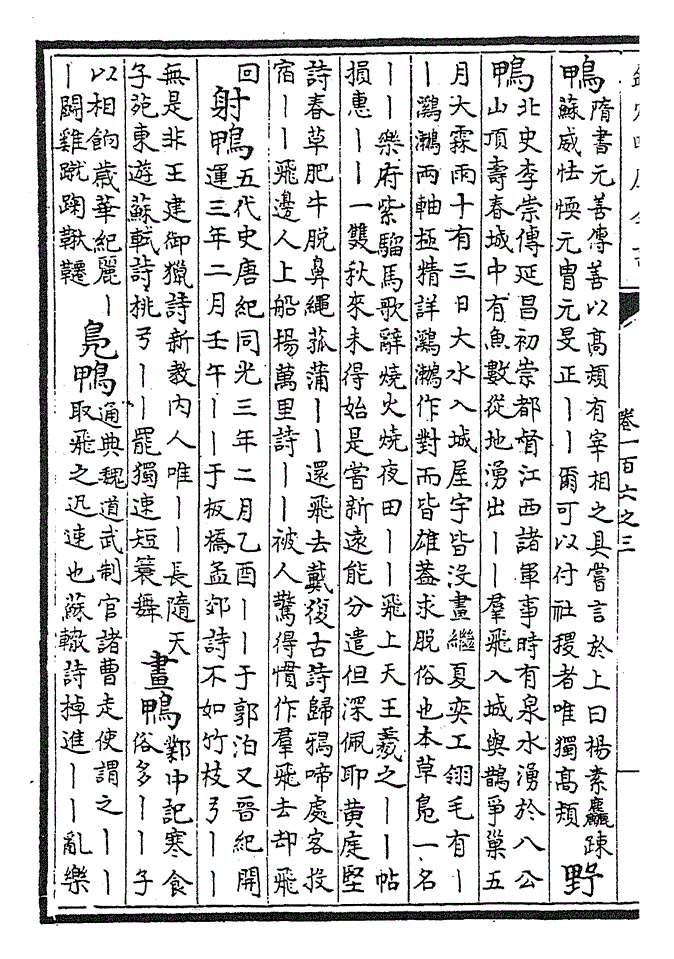 欽定四庫全書
卷一百六之三
鴨
隋書元善傳善以髙熲有宰相之具嘗言於上曰楊素麤踈
蘇威怯愞元胄元旻正丨丨爾可以付社稷者唯獨髙熲
野
鴨
北史李崇傳延昌初崇都督江西諸軍事時有泉水湧於八公
山頂壽春城中有魚數從地湧出丨丨羣飛入城與鵲爭巢五
月大霖雨十有三日大水入城屋宇皆没畫繼夏奕工翎毛有丨
丨鸂鶒兩軸極精詳鸂鶒作對而皆雄葢求脱俗也本草鳬一名
丨丨樂府紫騮馬歌辭燒火燒夜田丨丨飛上天王羲之丨丨帖
損惠丨丨一雙秋來未得始是嘗新遠能分遣但深佩耶黄庭堅
詩春草肥牛脱鼻繩菰蒲丨丨還飛去戴復古詩歸鴉啼處客投
宿丨丨飛邊人上船楊萬里詩丨丨被人驚得慣作羣飛去却飛
回
射鴨
五代史唐紀同光三年二月乙酉丨丨于郭泊又晉紀開
運三年二月壬午丨丨于板橋孟郊詩不如竹枝弓丨丨
無是非王建御獵詩新教内人唯丨丨長隨天
子苑東遊蘇軾詩桃弓丨丨罷獨速短蓑舞
畫鴨
鄴中記寒食
俗多丨丨子
以相餉歲華紀麗丨
丨鬭雞蹴踘鞦韆
鳬鴨
通典魏道武制官諸曹走使謂之丨丨
取飛之迅速也蘇轍詩掉進丨丨亂樂